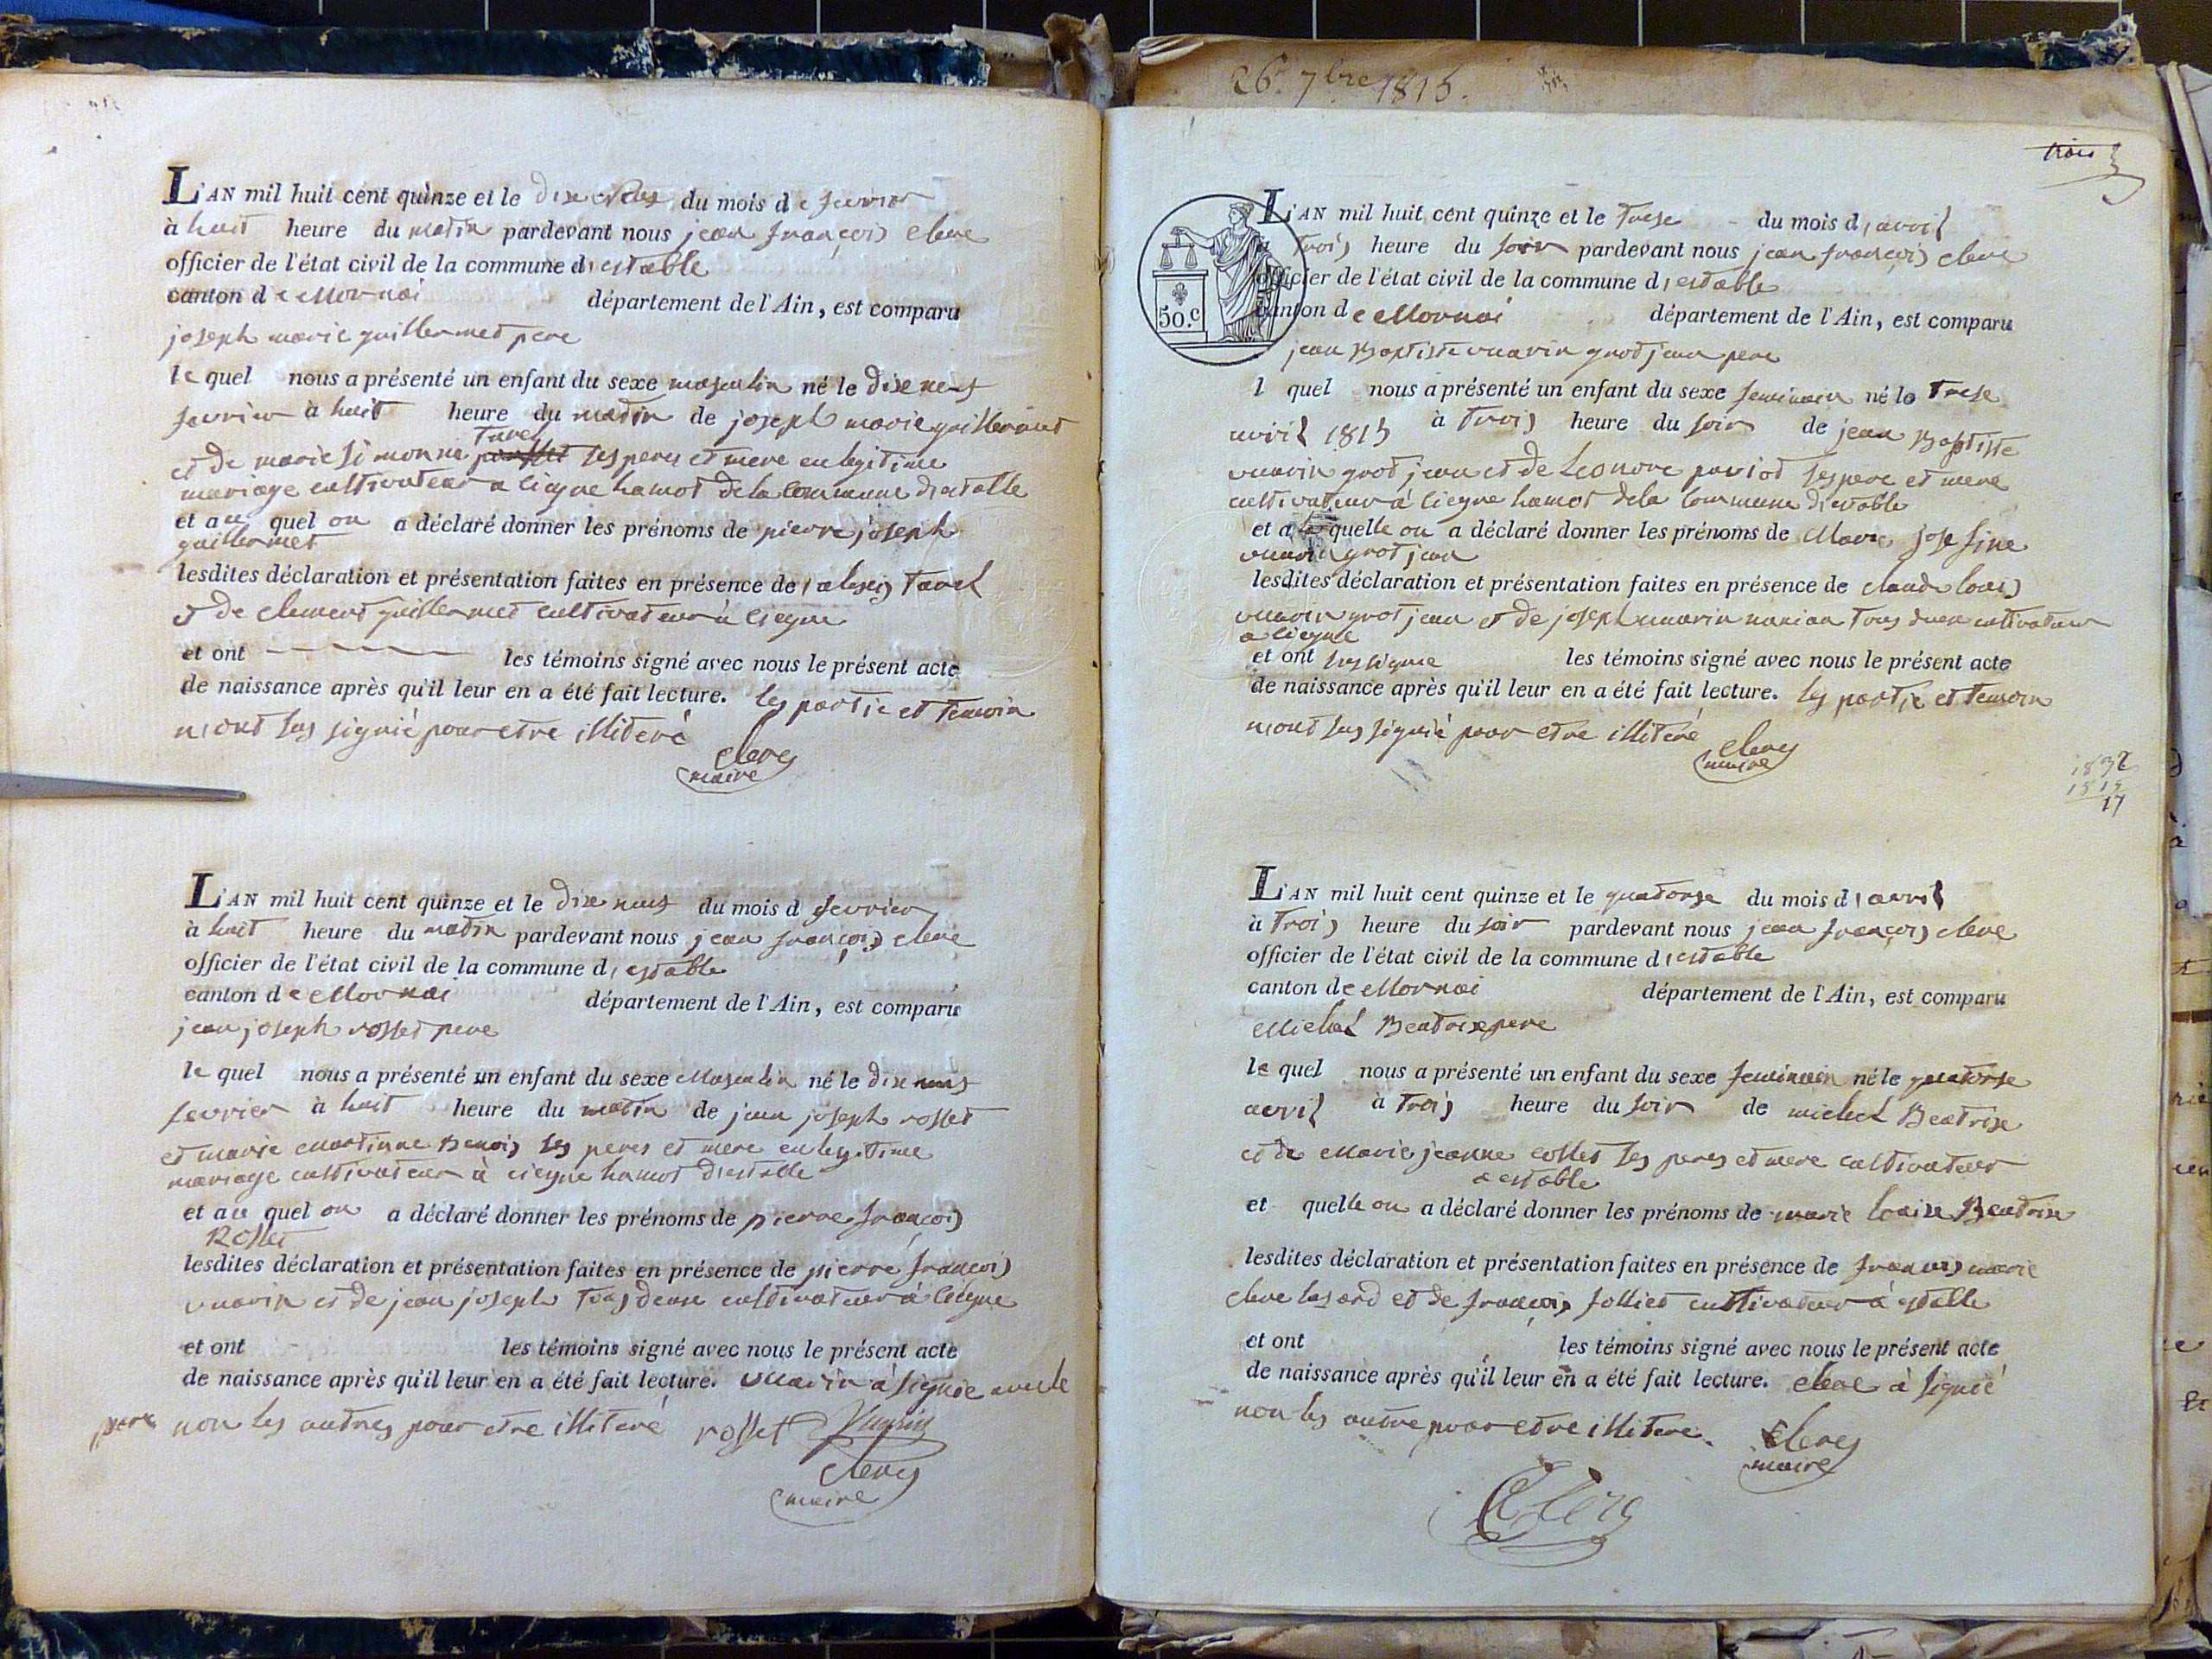 L'AN mil huit cent quinze et le dixe neuf du mois de fevrier
à huit heure du matin pardevant nous jean françois clere
officier de l'état civil de la commune d'estable
canton de Mornai département de l'Ain, est comparu
joseph marie guillermet pere
le quel nous a présenté un enfant du sexe masculin né le dixe neuf
fevrier à huit heure du matin de joseph marie guillermet
et de marie simonne Tavel ses peres et mere en legitime
mariage cultivateur a Ciegne hamot de la Commune d'estable
et au quel on a déclaré donner les prénoms de pierre joseph
guillermet
lesdites déclaration et présentation faites en présence de alexis Tavel
et de clement guillermet cultivateur à Ciegne
et ont les témoins signé avec nous le présent acte
de naissance après qu'il leur en a été fait lecture. les partie et temoin
n'ont sus signié pour etre illiteré
clere
maire
L'AN mil huit cent quinze et le dixe neuf du mois d fevrier
à huit heure du matin pardevant nous jean françois clere
officier de l'état civil de la commune d'estable
canton de Mornai département de l'Ain, est comparu
jean joseph rosset pere
le quel nous a présenté un enfant du sexe Masculin né le dixe neuf
fevrier à huit heure du matin de jean joseph rosset
et marie Martinne Benois ses peres et mere en legitime
mariage cultivateur à ciegne hamot d'estable
et au quel on a déclaré donner les prénoms de pierre françois
Rosset
lesdites déclaration et présentation faites en présence de pierre françois
vuarin et de jean joseph Tous deux cultivateur à Ciegne
et ont les témoins signé avec nous le présent acte
de naissance après qu'il leur en a été fait lecture. vuarin à signié avec le
pere non les autres pour etre illiteré rosset Vuarin
clere
maire
26. 7bre 1815.
trois
50.c
L'AN mil huit cent quinze et le Trese du mois d'avril
à Trois heure du soir pardevant nous jean françois clere
officier de l'état civil de la commune d'estable
canton de Mornai département de l'Ain, est comparu
jean Baptiste vuarin grot jean pere
l quel nous a présenté un enfant du sexe feminain né le Trese
avril 1815 à Trois heure du soir de jean Baptiste
vuarin grot jean et de Leonore paviot ses pere et mere
cultivateur à Ciegne hamot dela Commune d'estable
et a quelle on a déclaré donner les prénoms de Marie josefine
vuarin grot jean
lesdites déclaration et présentation faites en présence de claude louis
vuarin grot jean et de joseph vuarin Tous deux cultivateur
a Ciegne
et ont les témoins signé avec nous le présent acte
de naissance après qu'il leur en a été fait lecture. les partie et temoin
n'ont sus signié pour etre illiteré
clere
maire
1832
1815
17
L'AN mil huit cent quinze et le quatorse du mois d'avril
à Trois heure du soir pardevant nous jean françois clere
officier de l'état civil de la commune d'estable
canton de Mornai département de l'Ain, est comparu
Michel Beatrixe pere
le quel nous a présenté un enfant du sexe feminain né le quatorse
avril à Trois heure du soir de michel Beatrixe
et de Marie jeanne collet ses peres et mere cultivateur
a estable
et quelle on a déclaré donner les prénoms de marie louise Beatrixe
lesdites déclaration et présentation faites en présence de françois marie
clere et de françois jolliet cultivateur à estable
et ont les témoins signé avec nous le présent acte
de naissance après qu'il leur en a été fait lecture. clere à signié
non les autre pour etre illiteré.
clere
maire
Clere